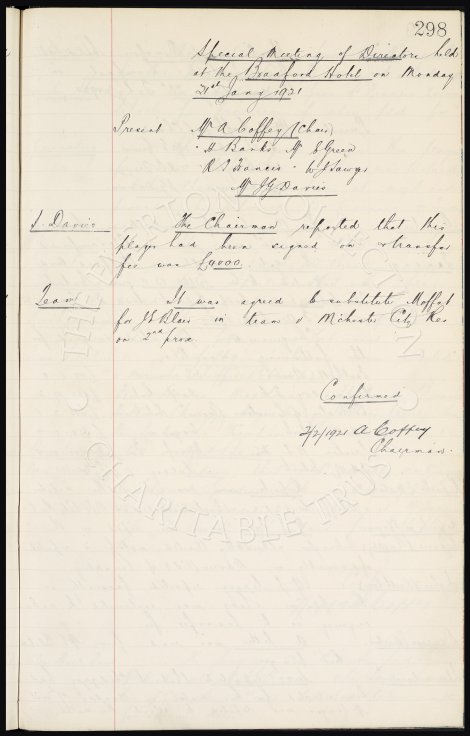 298
Special Meeting of Directors held
at the Bradford Hotel on Monday
31st Jany 1921
Present Mr A Coffey (Chair)
" H Banks Mr E Green
" R T Francis " W J Sawyer
Mr J G Davies
S. Davies The Chairman reported that this
player had been signed on & transfer
fee was £4000.
Team It was agreed to substitute Moffat
for J S Blair in team v M'chester City Res
on 2nd prox
Confirmed
2/2/1921 A Coffey
Chairman.
THE EVERTON COLLECTION
CHARITABLE TRUST